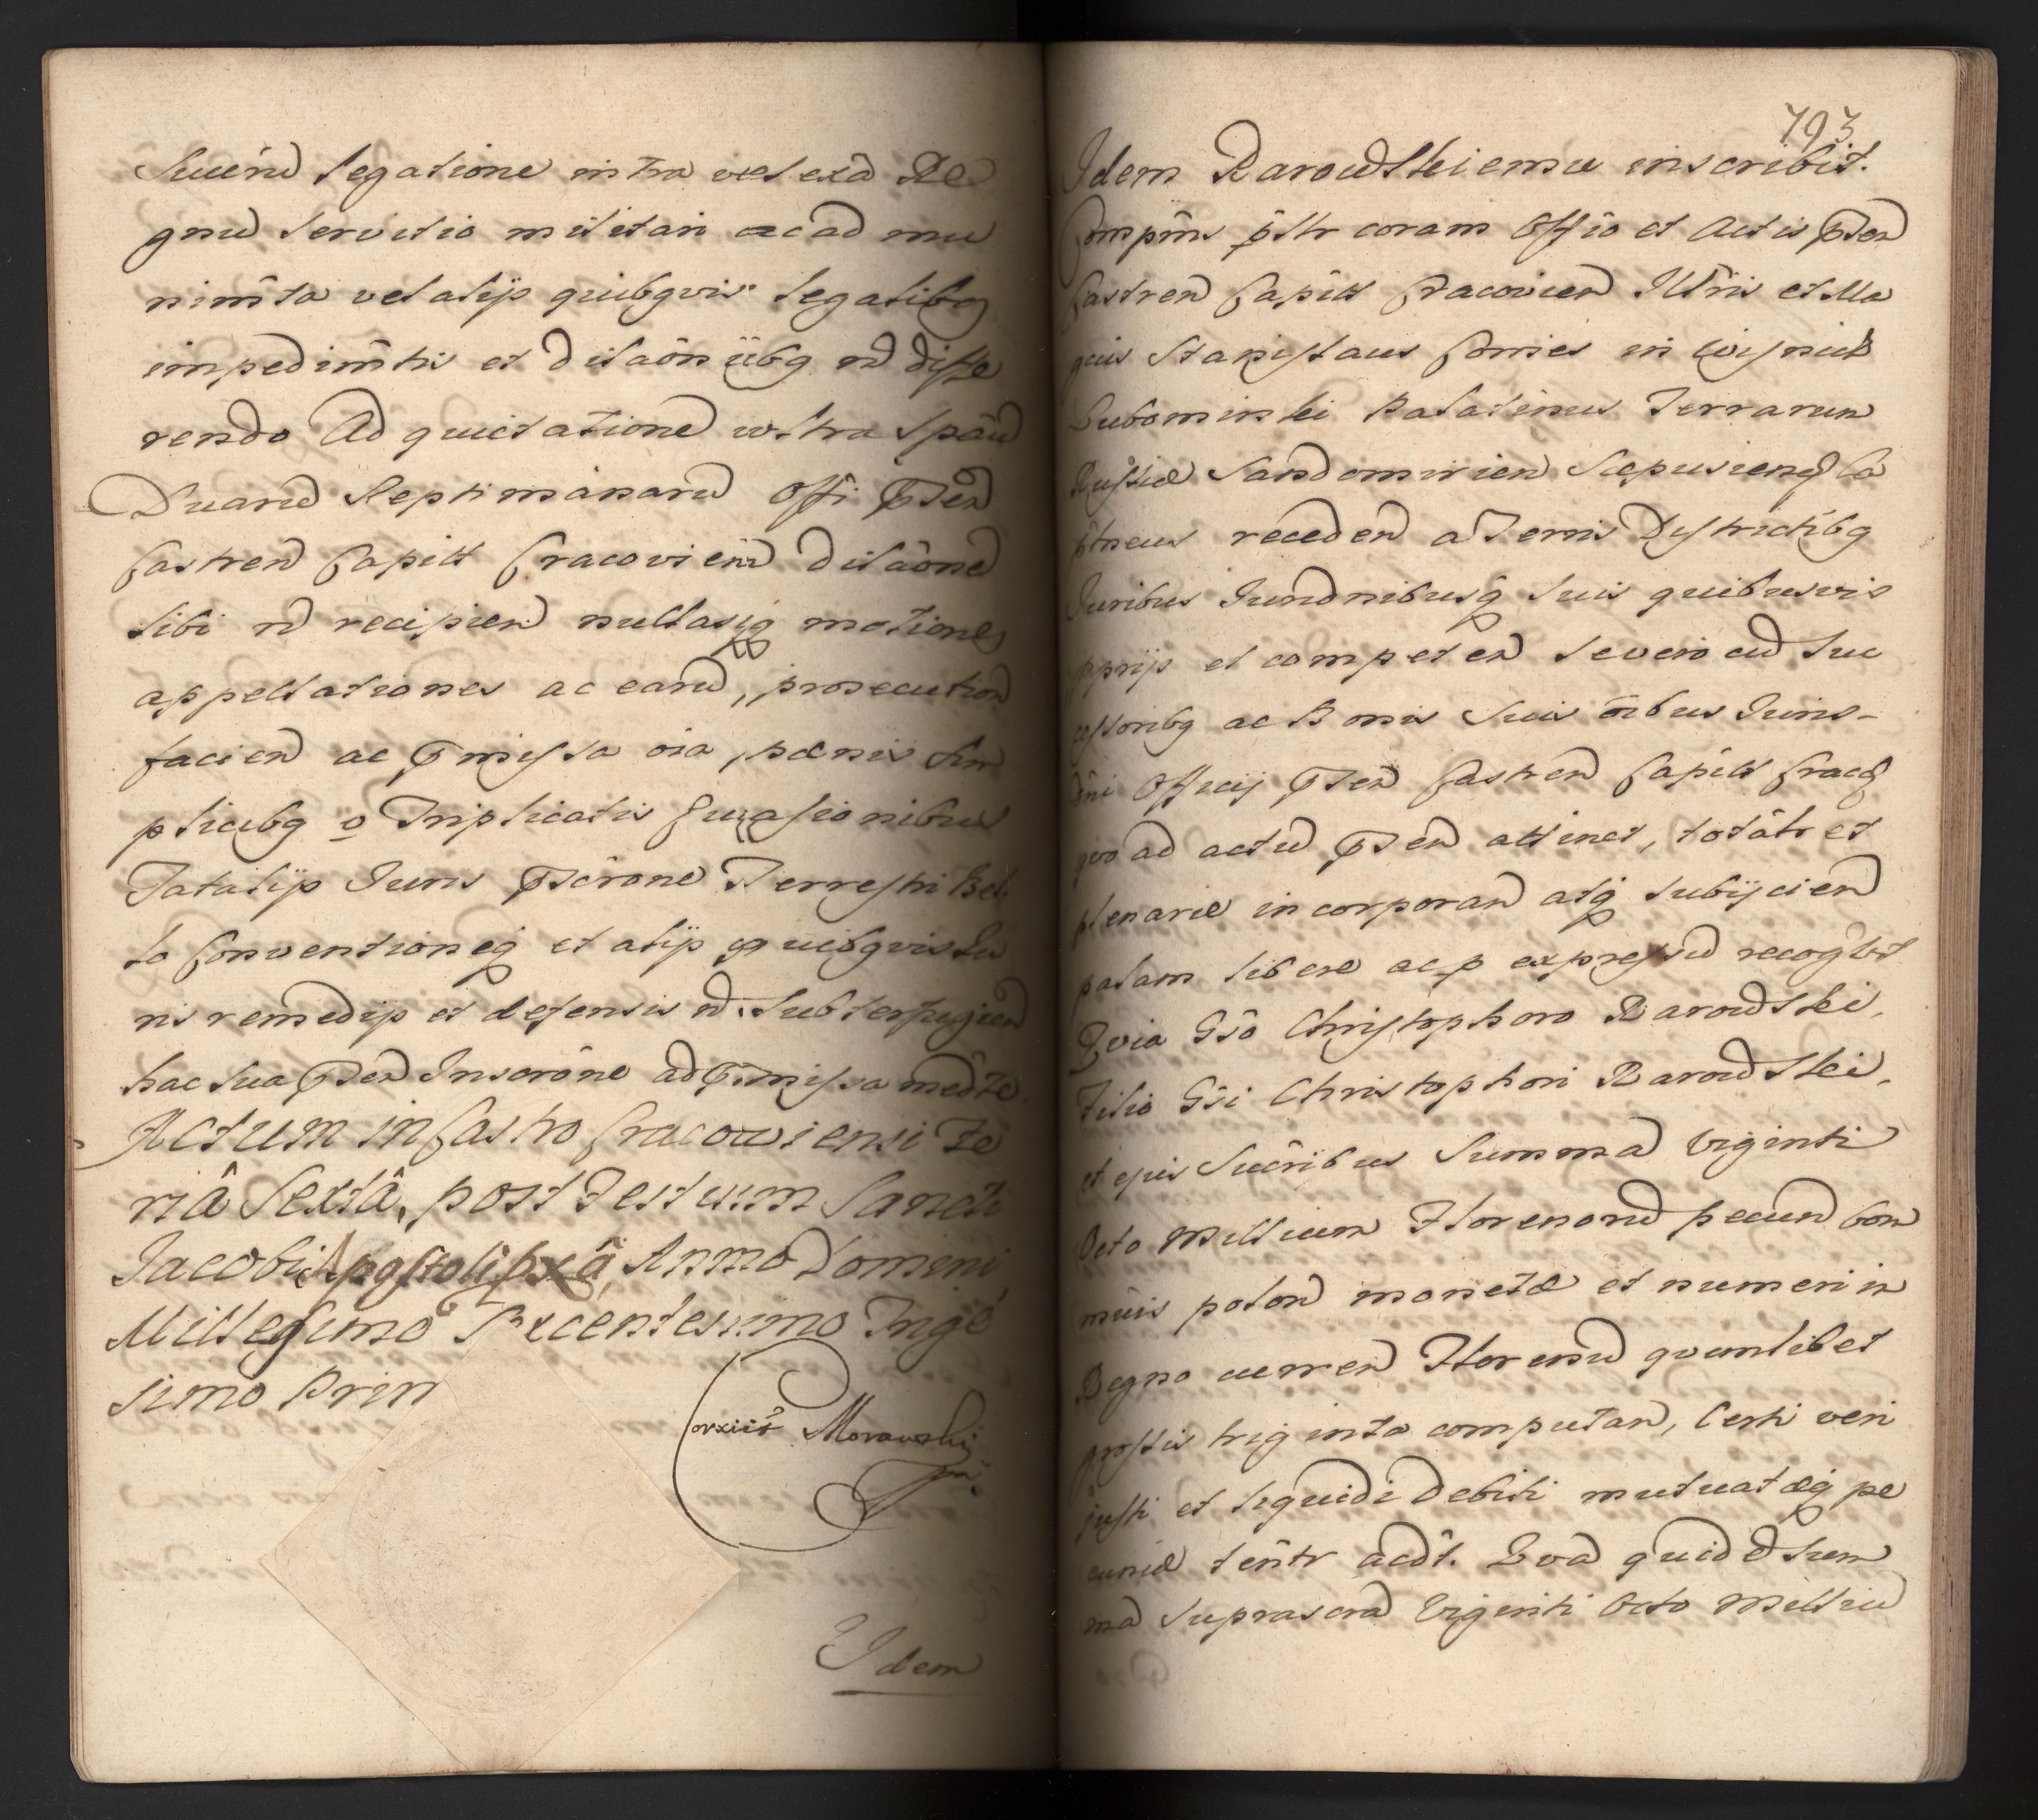 Suenđ legatione intra vel extra Re
gnũ servitio militari ac ad mu
nimẽta vel alijs quibqvis legalibq
impedimẽtis et dilaõniibq nõ diffe
rendo Ad quietationẽ vltra spãũ
Duarũ Septimanarũ Offi pñteñ
Castreñ Capitt Cracovieñ dilaõne
sibi nõ recipieñ nullasq motiones
appellationes ac earũ, prosecution
facieñ ac pmissa oĩa, pænis sim
plicibq Triplicatis Evasionibus
fatalijs Juris pscrõne Terrestri Bel
lo Conventioneq et alijs quibqvis Iu
ris remedijs et defensis nõ subterfugieñ
hac sua pñteñ Inscrõne ad pmissa mediãte
Actum in Castro Cracowiensi Fe
riâ Sextâ, post Festum Sancti
Iacobi Apostoli pxã, Anno Domini
Millesimo Sexcentesimo Trige
simo Prim
Correxit Morawski
Idem
793
Idem Rarowski emu inscribit.
Compñs psltr coram Offĩo et Actis pñteñ
Castreñ Capitt Cracovieñ Illris et Ma
gnis Stanislaus Comes in Wisnicz
Lubomirski Palatinus Terrarum
Russiæ Sandomirieñ Scepusienq Ca
ptneus recedeñ a Terris Districtibq
Iuribus Iurndnibusq suis quibusvis
pprijs et competeñ se vero cũ suc
cessoribq ac Bonis suis oĩbus Iuris-
dni Officij pñteñ Castreñ Capitt Cracq
quo ad actũ pñteñ attinet, totãtr et
plenarie incorporañ atq subijcieñ
palam libere ac p expressũ recogt
Qvia Gso Christophoro Rarowski,
Filio Gsi Christophori Rarowski,
et ejus Succribus Summã Viginti
Octo Millium Florenorũ pecuñ com
mũis poloñ monetæ et numeri in
Regno curreñ Florenũ quemlibet
grossis triginta computañ, Certi veri
justi et liquidi Debiti mutuatæq pe
cuniæ tẽntr ac dt. Qvã quidẽ Sum
mã suprascrã Viginti Octo Milliũ